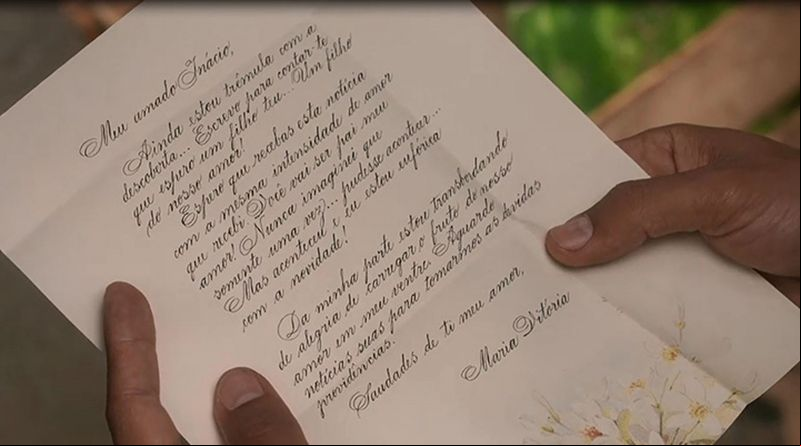 Meu amado Inácio,
Ainda estou trêmula com a
descoberta... Escrevo para contar-te
que espero um filho teu... Um filho
do nosso amor!
Espero que recebas esta notícia
com a mesma intensidade de amor
que recebi. Você vai ser pai meu
amor! Nunca imaginei que
somente uma vez... pudesse acontecer...
Mas aconteceu e eu estou eufórica
com a novidade!
Da minha parte estou transbordando
de alegria de carregar o fruto de nosso
amor em meu ventre. Aguardo
notícias suas para tomarmos as devidas
providências.
Saudades de ti meu amor,
Maria Vitória